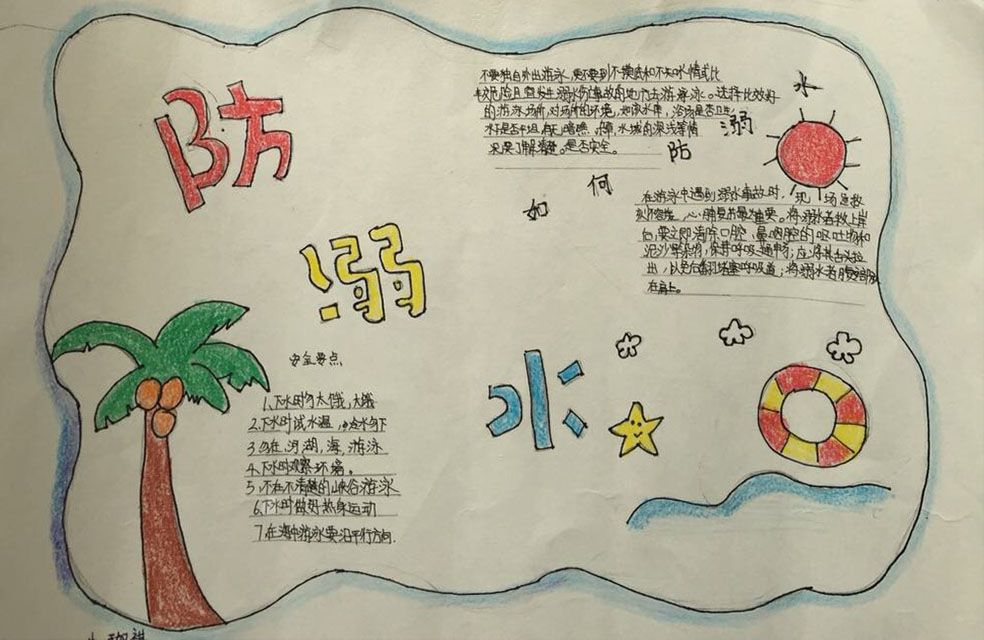 防
溺
水
如何防溺水
不要独自外出游泳,更不要到不摸底和不知水情或比
较危险且宜发生溺水伤事故的地方去游泳。选择比较好
的游泳场所,对场所的环境,如该水库,浴场是否卫生,
水下是否平坦,有无暗礁,水域的深浅等情
况要了解清楚。是否安全。
在游泳中遇到溺水事故时,现场急救
刻不容缓,心肺复苏最重要。将溺水者救上岸
后,要立即清除口腔、鼻咽腔的呕吐物和
泥沙等杂物,保持呼吸通畅;应将其舌头拉
出,以免后翻堵塞呼吸道;将溺水者
在肩上。
安全要点
1、下水时勿太饿,太饱
2、下水时试水温,水勿下
3、勿在,河,湖,海,游泳
4、下水时观察环境。
5、不在不清楚的峡谷游泳
6、下水时做好热身运动
7、在海中游泳要沿平行方向.